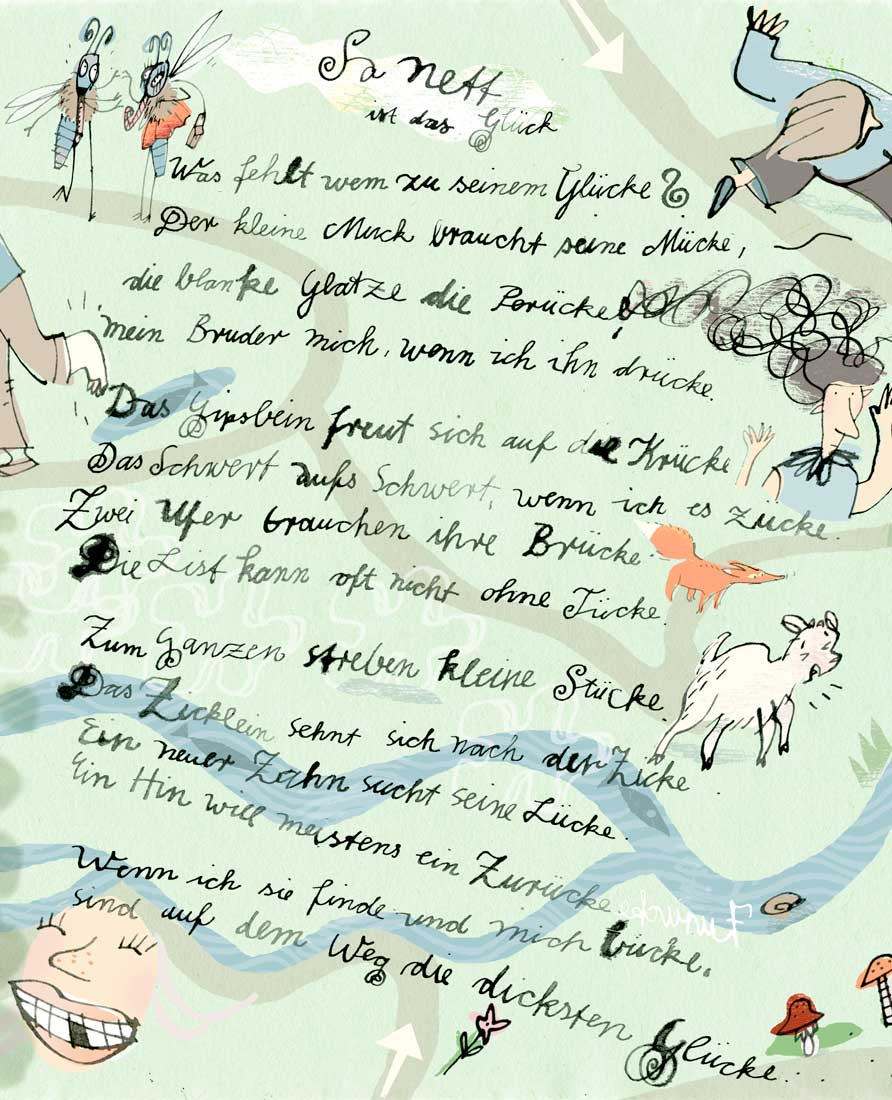 So nett
ist das Glück
Was fehlt wem zu seinem Glücke?
Der kleine Muck braucht seine Mücke,
die blanke Glatze die Perücke,
mein Bruder mich, wenn ich ihn drücke.
Das Gipsbein freut sich auf die Krücke
Das Schwert aufs Schwert, wenn ich es zücke.
Zwei Ufer brauchen ihre Brücke
Die List kann oft nicht ohne Tücke.
Zum Ganzen streben kleine Stücke.
Das Zicklein sehnt sich nach der Zicke
Ein neuer Zahn sucht seine Lücke.
Ein Hin will meistens ein Zurücke.
Zurücke
Wenn ich sie finde und mich bücke,
sind auf dem Weg die dicksten Glücke...